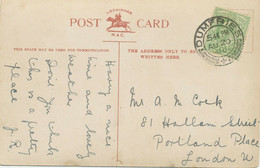 LOCHINVAR
POST CARD
M&C.
THIS SPACE MAY BE USED FOR COMMUNICATION
THE ADDRESS ONLY TO BE
WRITTEN HERE
DUMFRIES
Having a nice
time and lovely
weather
Don't you think
this is a pretty
place
J. R.
Mr A. M. Cook
81 Hallam Street
Portland Place
London W